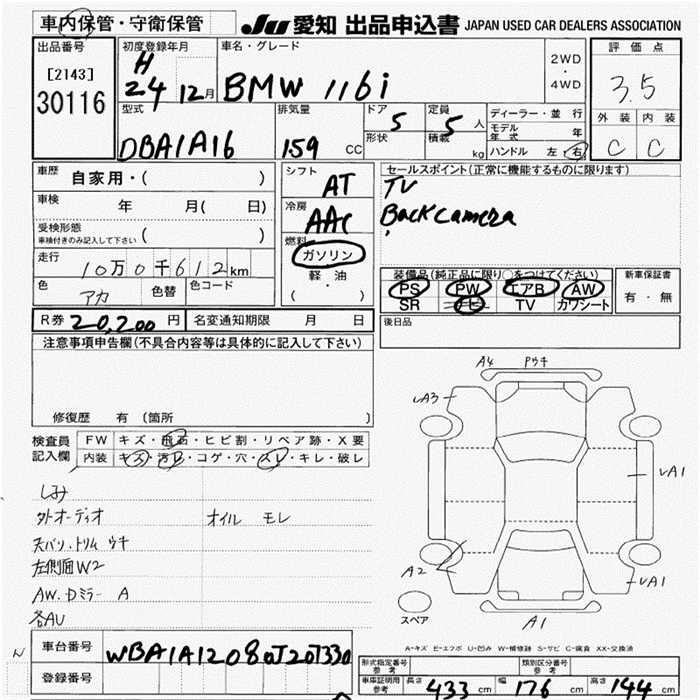 車内保管・守衛保管
JU 愛知 出品申込書 JAPAN USED CAR DEALERS ASSOCIATION
出品番号
[2143]
30116
初度登録年月
H
24 12月
車名・グレード
BMW 116i
2WD
・
4WD
評価点
3.5
外装 内装
C C
型式
DBA1A16
排気量
159 CC
ドア 5
形状
定員 5 人
積載 kg
ディーラー・並行
モデル年式 年
ハンドル 左・右
車歴
自家用・( )
車検
年 月( 日)
受検形態
車検付きのみ記入して下さい ( )
走行
10万0千612km
色
アカ
色替
色コード
シフト
AT
冷房
AAC
燃料
ガソリン
軽・油
( )
セールスポイント(正常に機能するものに限ります)
TV
Back camera
装備品(純正品に限り○をつけてください)
PS PW エアB AW
SR ナビ TV カワシート
新車保証書
有・無
R券 20,200円
名変通知期限 月 日
後日品
注意事項申告欄(不具合内容等は具体的に記入して下さい)
修復歴 有 (箇所 )
検査員
記入欄
FW キズ・飛石・ヒビ割・リペア跡・X要
内装 キズ・汚レ・コゲ・穴・スレ・キレ・破レ
しみ
外オーディオ オイル モレ
天バリ・トリム ウキ
左側面W2
AW.Dミラー A
各AU
A4 Pウキ
A3
A1
A2
A1
A1
スペア
A-キズ E-エクボ U-凹み W-補修跡 S-サビ C-腐食 XX-交換済
N
車台番号
WBA1A1208 0J20733
登録番号
形式指定番号
参考
類別区分番号
参考
車庫証明用
参考
長さ 433 cm 幅 176 cm 高さ 144 cm